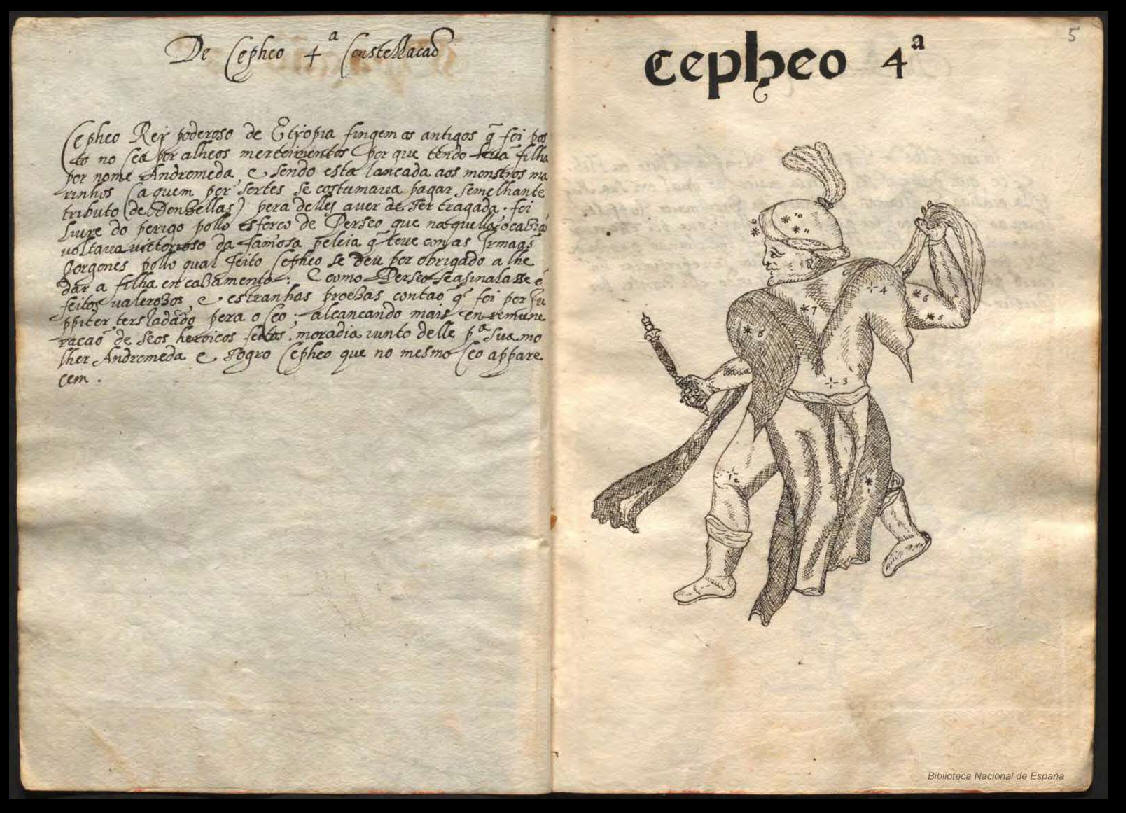 De Cepheo 4ª Constellacaõ
Cepheo Rey poderoso de Etyopia fingem os antigos q̃ foi pos
to no Ceo por alheos merecimentos por que tendo huã filha
por nome Andromeda, e sendo esta lancada aos monstros ma
rinhos (a quem por sortes se costumava pagar semelhante
tributo (de Donzellas) pera delles aver de ser tragada: foi
livre do perigo pollo esforco de Perseo que naquella ocasiaõ
voltava victorioso da famosa peleia q̃ teve com as Irmaãs
Gorgones pollo qual feito Cepheo se deu por obrigado a lhe
dar a filha em casamento: E como Perseo se asinalasse ẽ
feitos valerosos, e estranhas proezas contaõ q̃ foi por Iu
ppiter tersladado pera o Ceo; alcancando mais em remune
racaõ de seos heroicos feitos moradia iunto delle pª sua mo
lher Andromeda e sogro Cepheo que no mesmo Ceo appare
cem.
5
Cepheo 4ª
4
6
5
7
6
3
1
2
Biblioteca Nacional de España